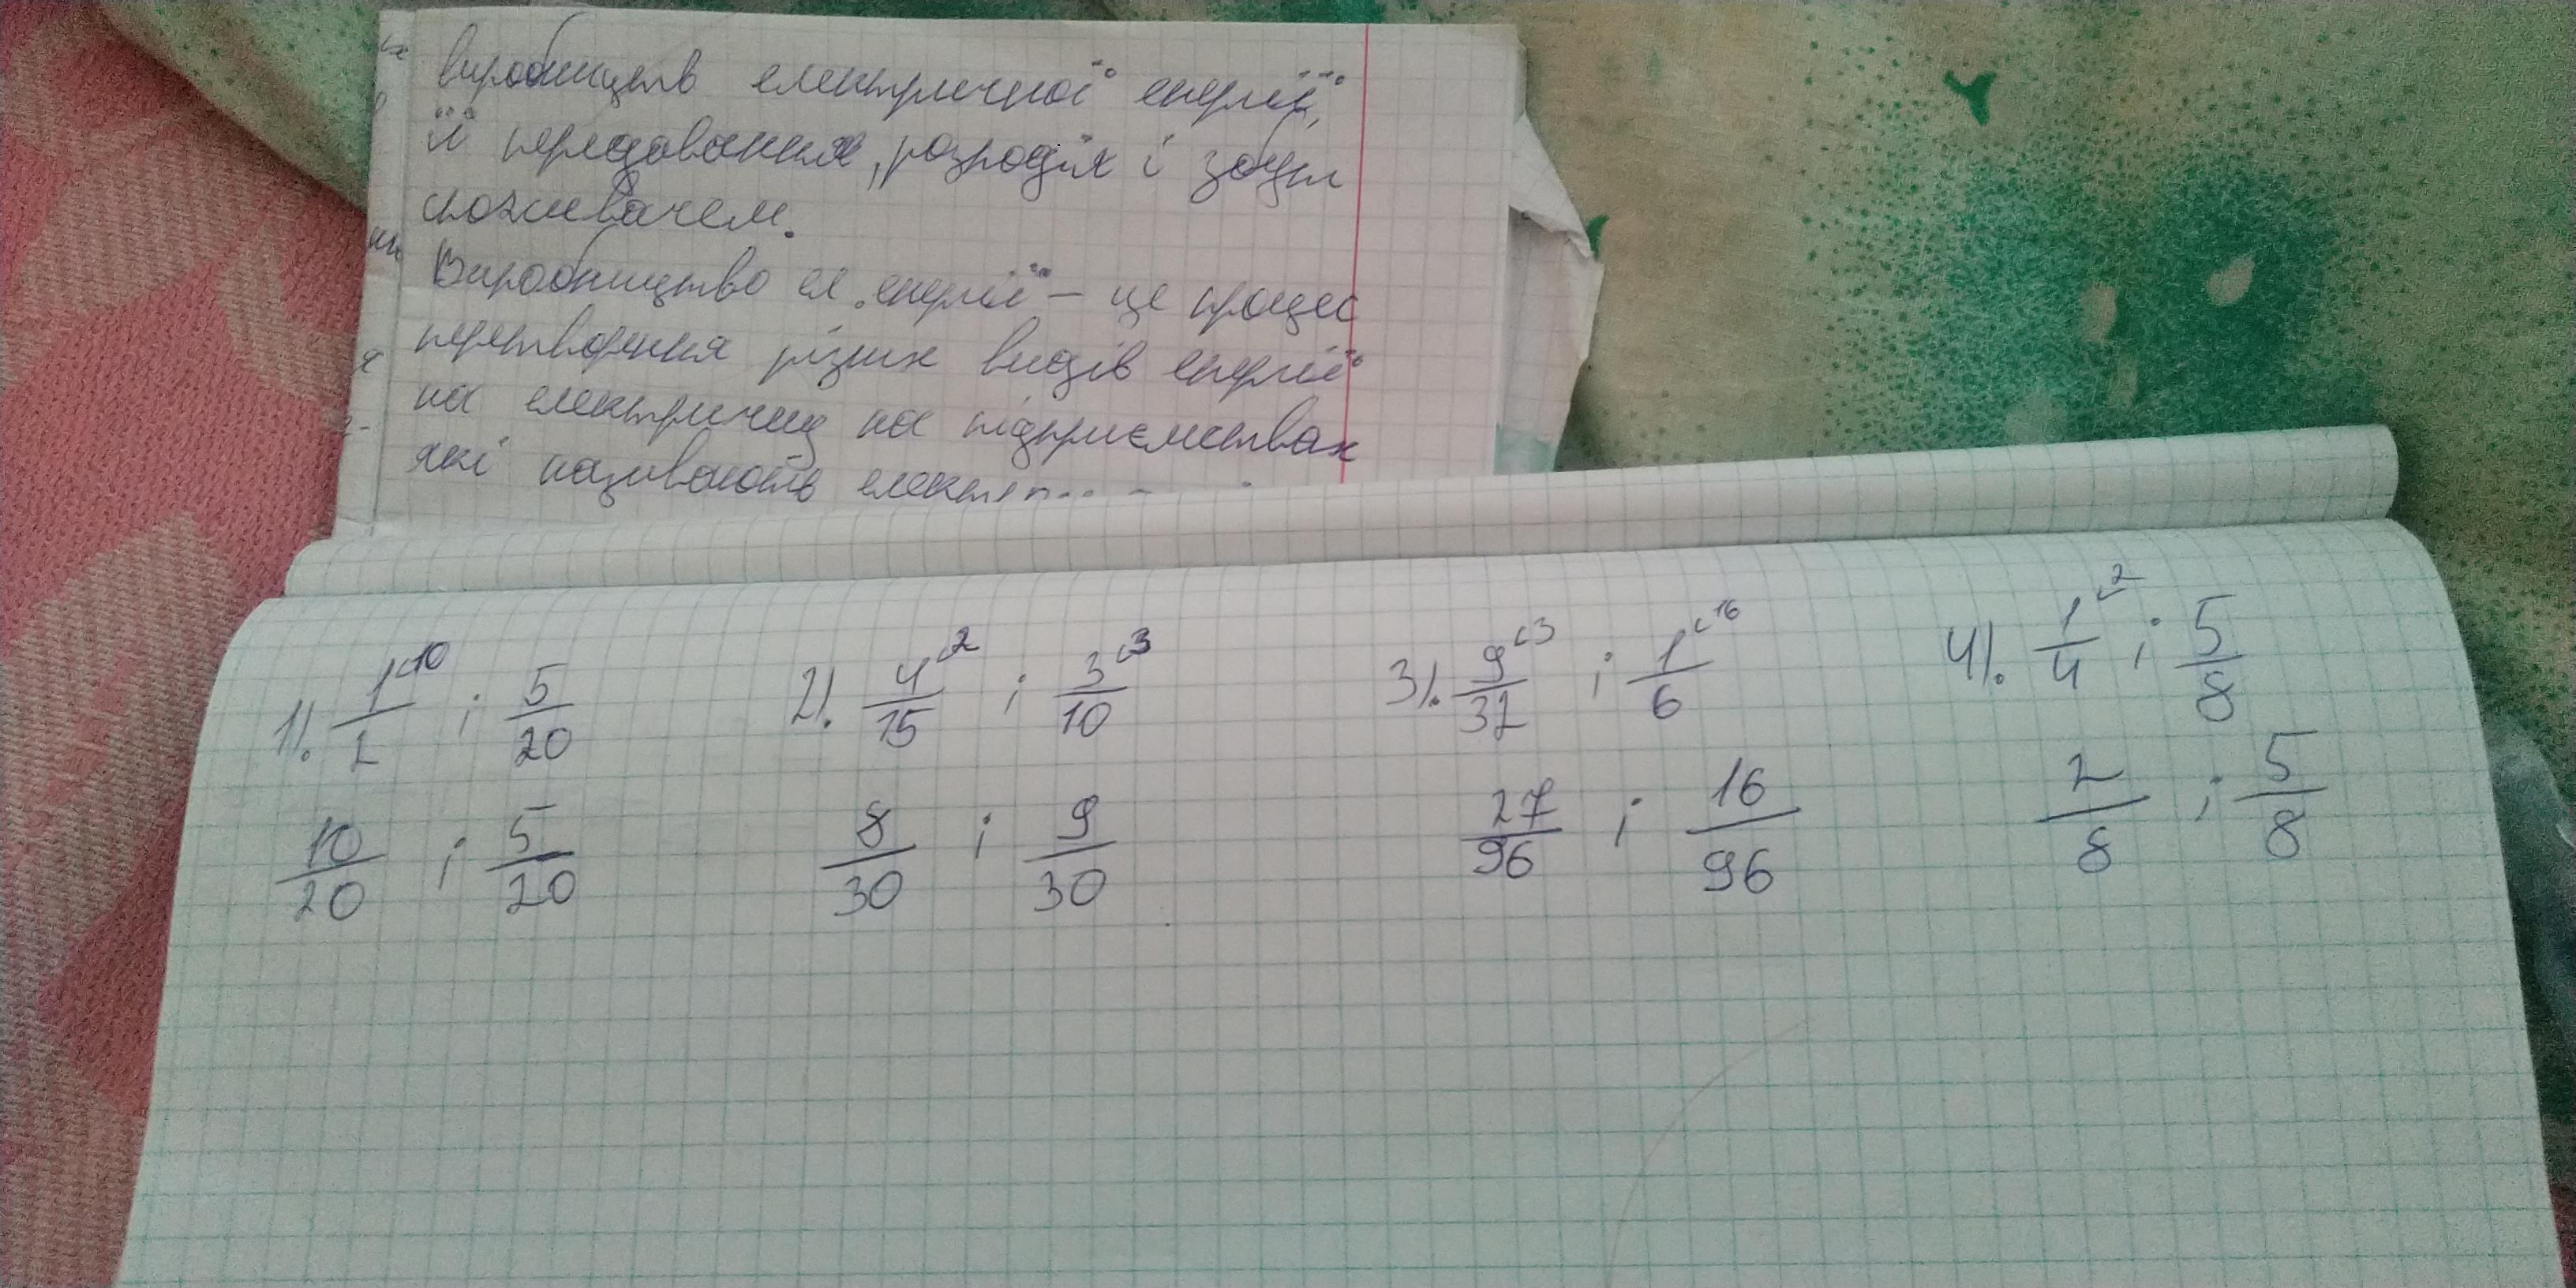 виробництв електричної енергії,
її передавання, розподіл і збут
споживачем.
Виробництво ел. енергії - це процес
перетворення різних видів енергії
на електричну на підприємствах
які називають
1). 1/2 ^10 ; 5/20 2). 4/15 ^2 ; 3/10 ^3 3). 9/32 ^3 ; 1/6 ^16 4). 1/4 ^2 ; 5/8
10/20 ; 5/20 8/30 ; 9/30 27/96 ; 16/96 2/8 ; 5/8